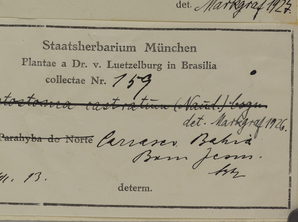 det. Markgraf 1927.
Staatsherbarium München
Plantae a Dr. v. Luetzelburg in Brasilia
collectae Nr. 159
rostratum (Naud.) Cogn
det. Markgraf 1926.
Parahyba do Norte Carrasco Bahia
Bom Jesus
13.
determ.